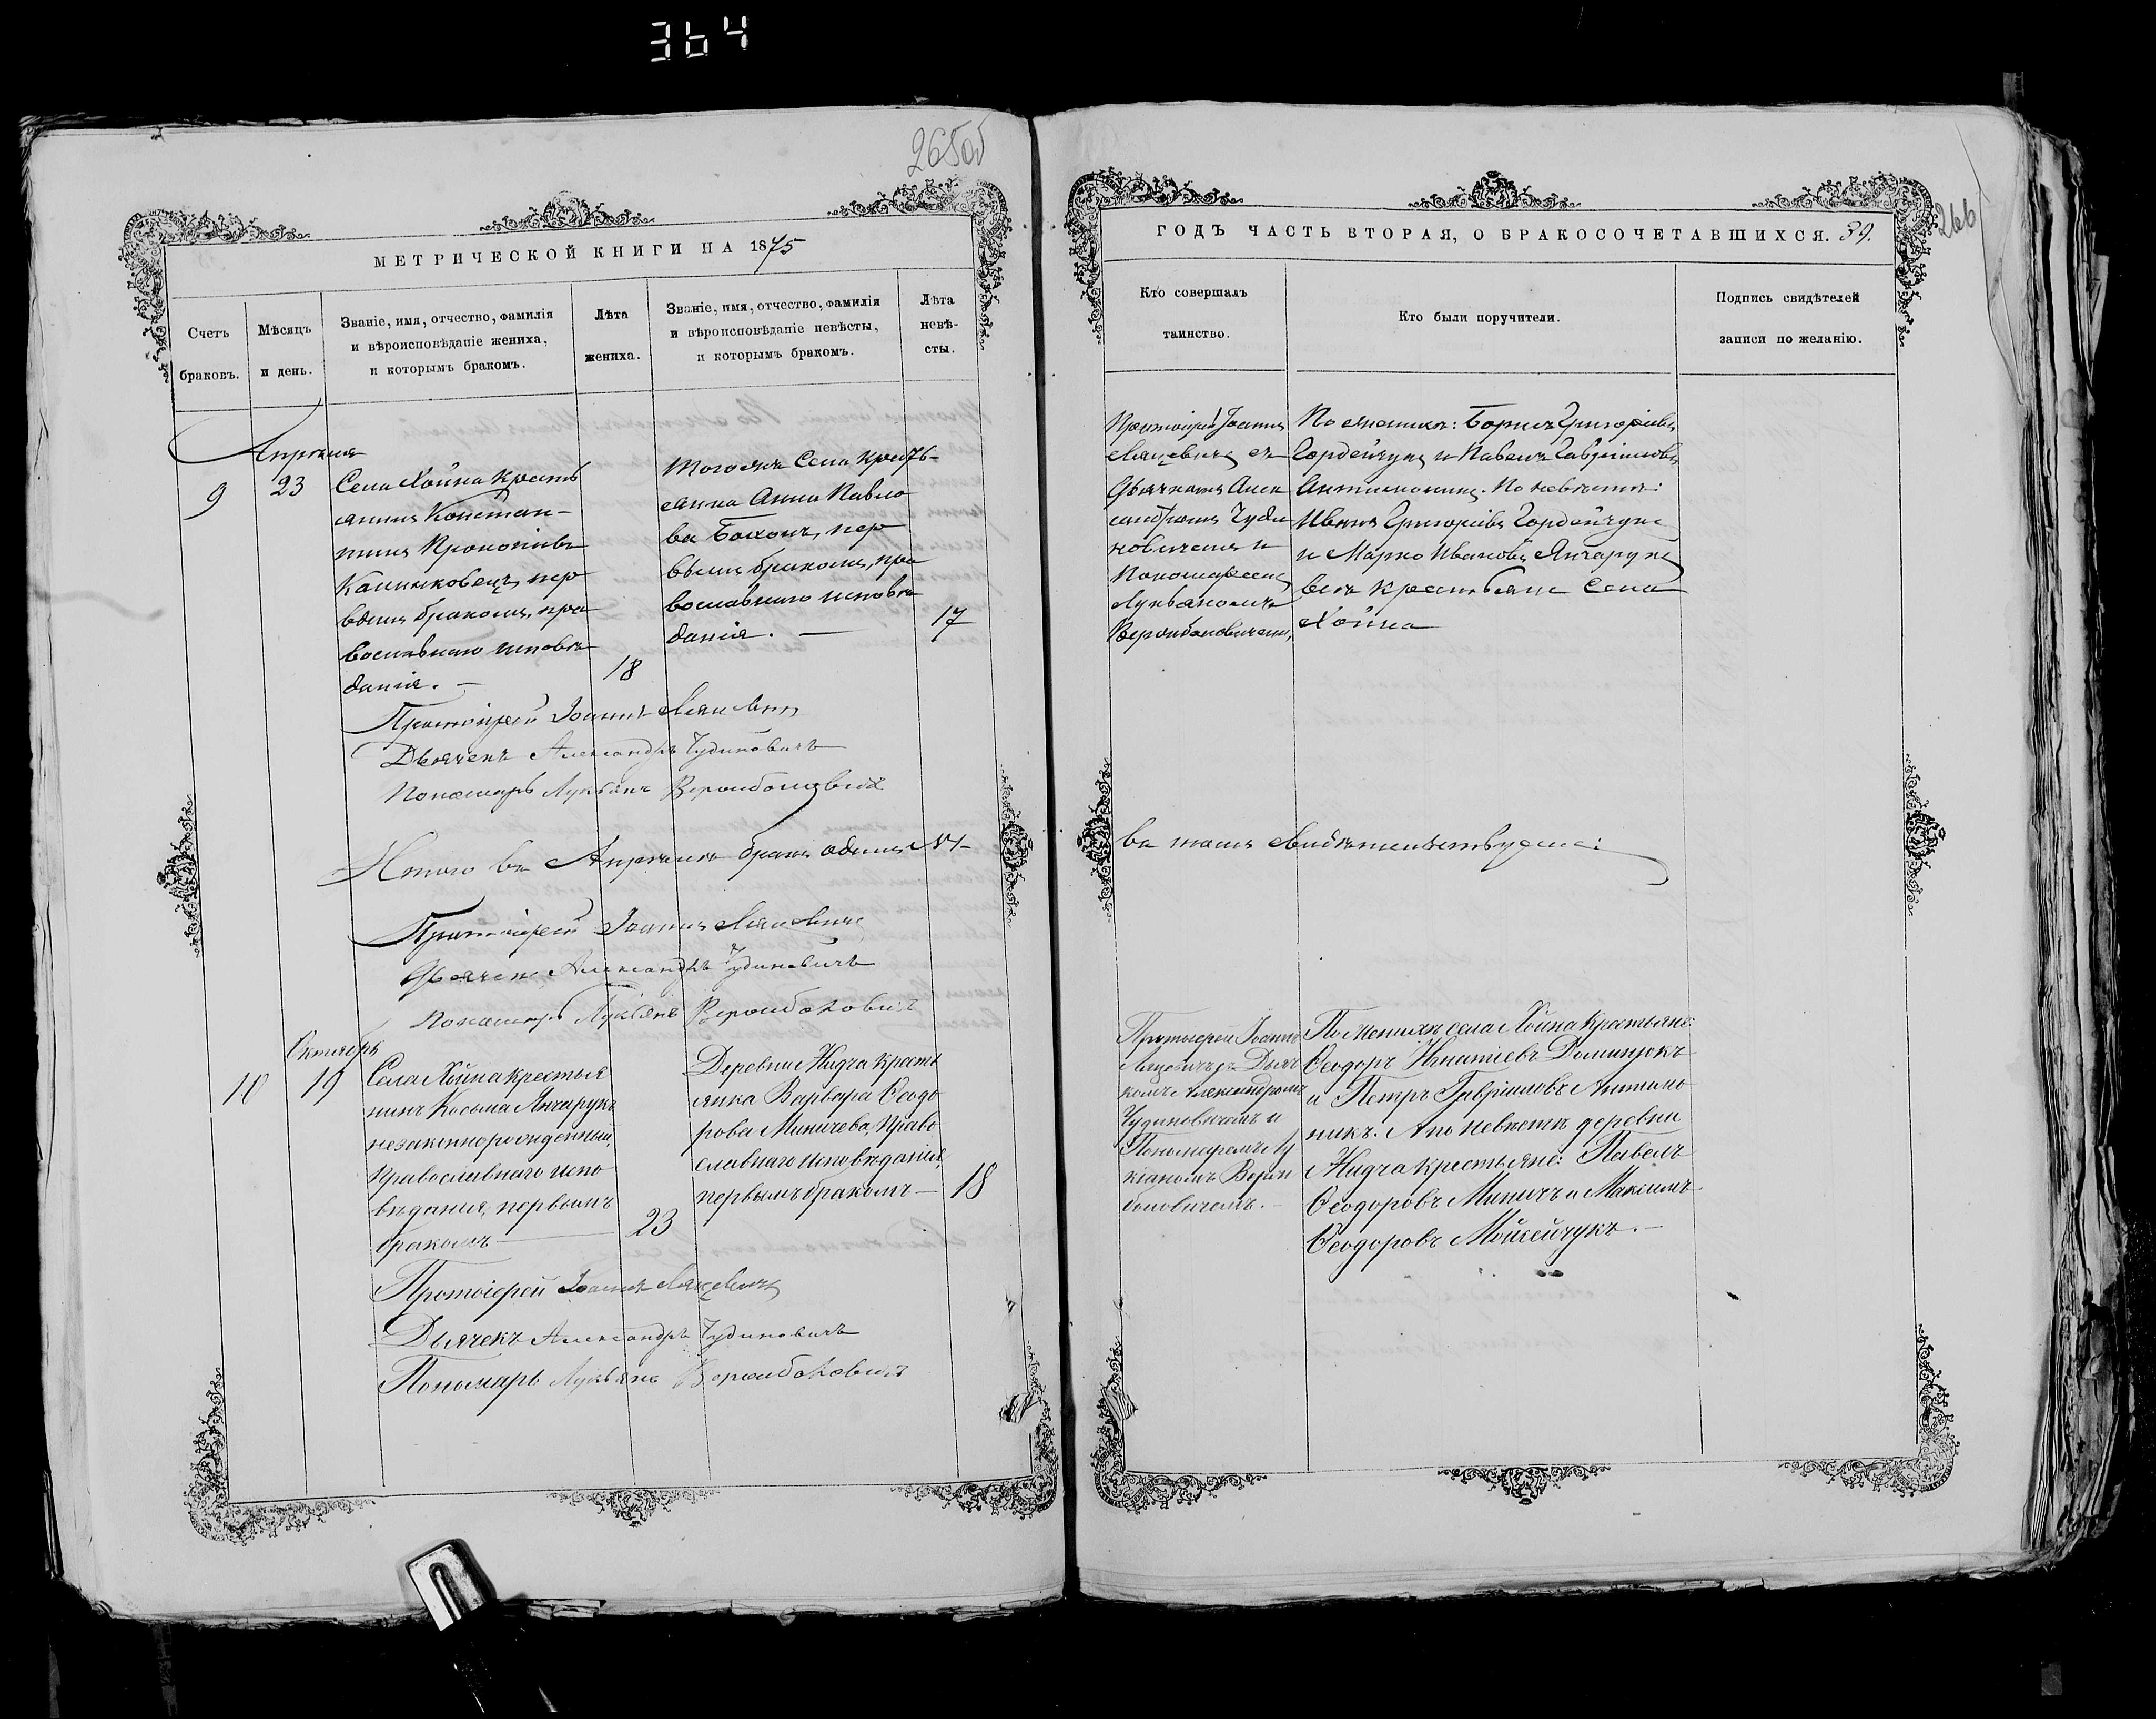 364
265об
МЕТРИЧЕСКОЙ КНИГИ НА 1875
Счетъ
браковъ.
Мѣсяцъ
и день.
Званіе, имя, отчество, фамилія
и вѣроисповѣданіе жениха,
и которымъ бракомъ.
Лѣта
жениха.
Званіе, имя, отчество, фамилія
и вѣроисповѣданіе невѣсты,
и которымъ бракомъ.
Лѣта
невѣ-
сты.
Апрѣля
9
23
Села Хойна кресть
янинъ Констан-
тинъ Прокопіевъ
Калинковецъ, пер
вымъ бракомъ, пра
вославнаго исповѣ
данія. —
18
Того же Села кресть-
янка Анна Павло
ва Бохонъ, пер
вымъ бракомъ, пра
вославнаго исповѣ
данія. —
17
Протоіерей Іоаннъ
Дьячекъ Александръ Чудиновичъ
Пономарь Лукьянъ
Итого въ Апрѣлѣ бракъ одинъ №1
Протоіерей Іоаннъ
Дьячекъ Александръ Чудиновичъ
Пономарь Лукьянъ
Октябрь
10
19
Села Хойна крестья
нинъ Косьма Янчарукъ
незаконнорожденный,
Православнаго испо
вѣданія, первымъ
бракомъ —
23
Деревни Жидча кресть
янка Варвара Ѳеодо
рова Миничева, Право
славнаго исповѣданія,
первымъ бракомъ —
18
Протоіерей Іоаннъ
Дьячекъ Александръ Чудиновичъ
Пономарь Лукьянъ
266
ГОДЪ ЧАСТЬ ВТОРАЯ, О БРАКОСОЧЕТАВШИХСЯ. 39.
Кто совершалъ
таинство.
Кто были поручители.
Подпись свидѣтелей
записи по желанію.
Протоіерей Іоаннъ
съ
Дьячкомъ Алек
сандромъ Чуди
новичемъ и
Пономаремъ
Лукьяномъ
По женихѣ: Борисъ Григоріевъ
Гордейчукъ и Павелъ Гавріиловъ
Антимоникъ. По невѣстѣ:
Иванъ Григоріевъ Гордейчукъ
и Марко Ивановъ Янчарукъ
все крестьяне Села
Хойна
въ томъ свидѣтельствуемъ:
Протоіерей Іоаннъ
съ Дьяч
комъ Александромъ
Чудиновичемъ и
Пономаремъ Лу
кіаномъ
По женихѣ села Хойна крестьяне:
Ѳеодоръ Игнатіевъ
и Петръ Гавріиловъ Антимо
никъ. А по невѣстѣ деревни
Жидча крестьяне: Павелъ
Ѳеодоровъ Миничъ и Максимъ
Ѳеодоровъ Мойсейчукъ. —